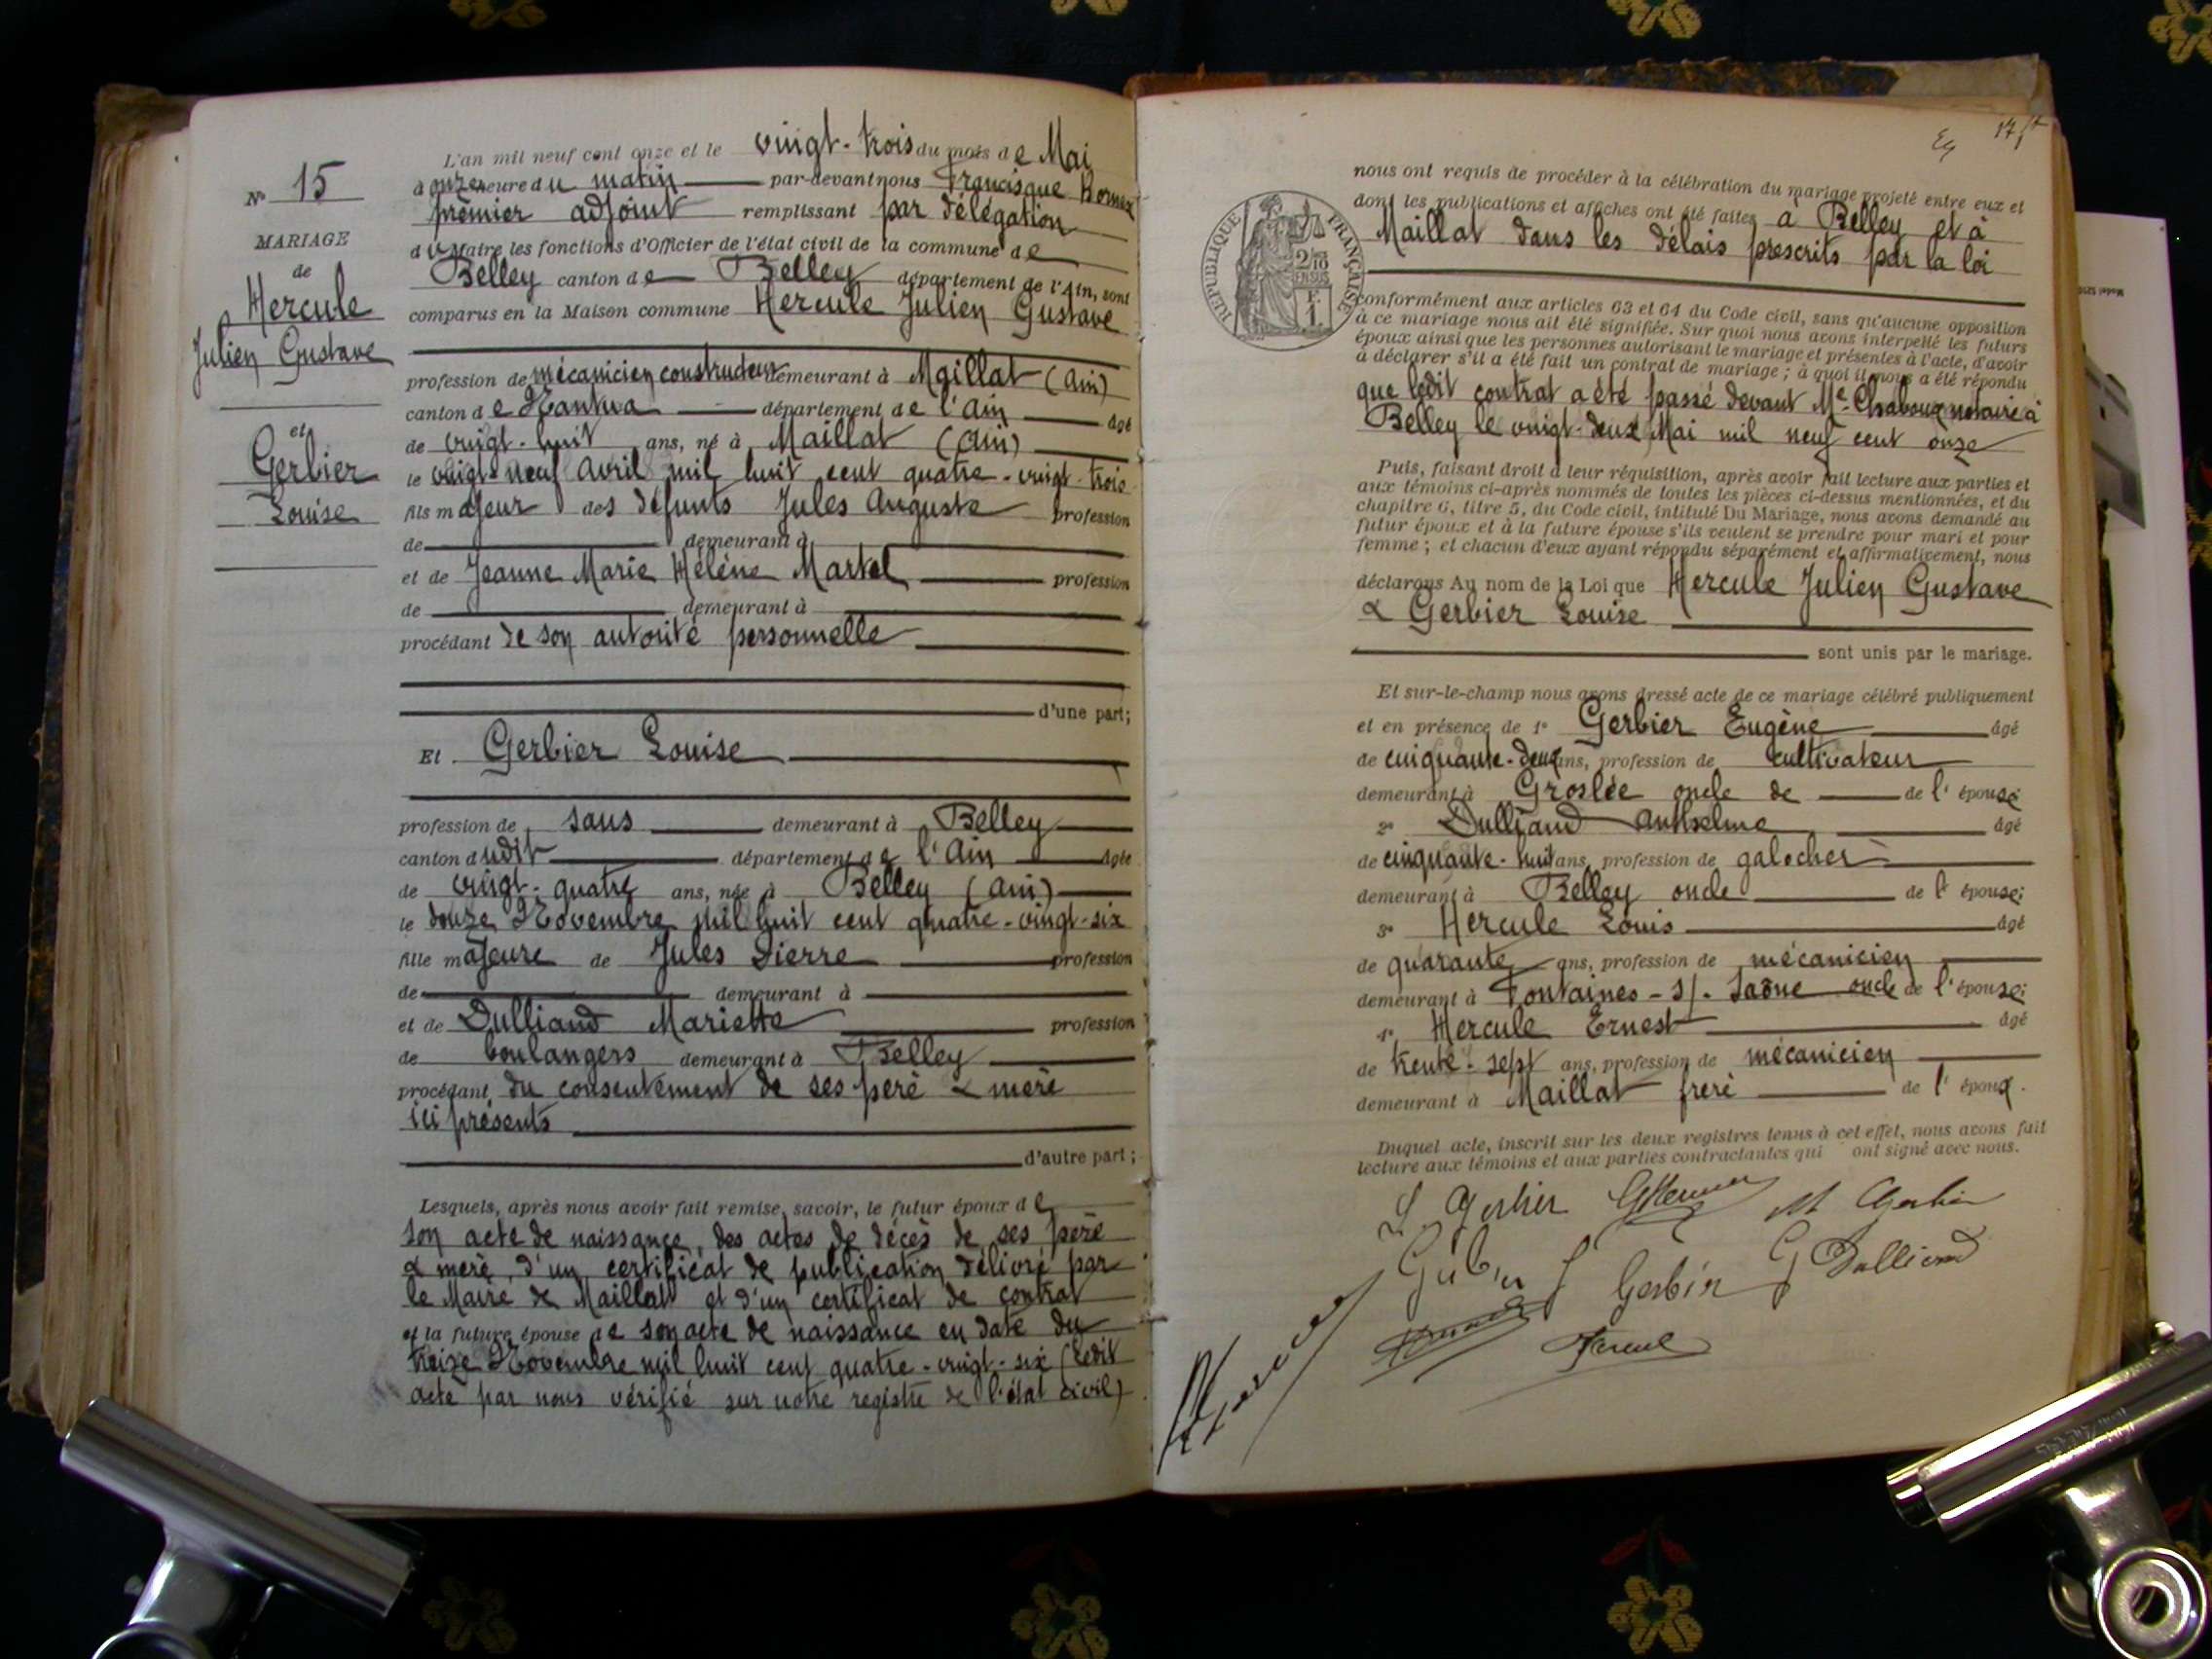 N° 15
MARIAGE
de
Hercule
Julien Gustave
et
Gerbier
Louise
L'an mil neuf cent onze et le vingt-trois du mois de Mai
à onze heure du matin par-devant nous Francisque
premier adjoint remplissant par délégation
du Maire les fonctions d'Officier de l'état civil de la commune de
Belley canton de Belley département de l'Ain, sont
comparus en la Maison commune Hercule Julien Gustave
profession de mécanicien constructeur demeurant à Maillat (Ain)
canton de Nantua département de l'Ain âgé
de vingt-huit ans, né à Maillat (Ain)
le vingt-neuf avril mil huit cent quatre-vingt-trois
fils majeur des défunts Jules Auguste profession
de demeurant à
et de Jeanne Marie Hélène Martel profession
de demeurant à
procédant de son autorité personnelle
d'une part;
Et Gerbier Louise
profession de sans demeurant à Belley
canton dudit département de l'Ain âgée
de vingt-quatre ans, née à Belley (Ain)
le douze Novembre mil huit cent quatre-vingt-six
fille majeure de Jules Pierre profession
de demeurant à
et de Dulliand Mariette profession
de boulangers demeurant à Belley
procédant du consentement de ses père & mère
ici présents
d'autre part;
Lesquels, après nous avoir fait remise, savoir, le futur époux de
son acte de naissance, des actes de décès de ses père
& mère, d'un certificat de publication délivré par
le Maire de Maillat et d'un certificat de contrat
et la future épouse de son acte de naissance en date du
treize Novembre mil huit cent quatre-vingt-six (ledit
acte par nous vérifié sur notre registre de l'état civil)
REPUBLIQUE FRANÇAISE
2/10 EN SUS
F. 1
nous ont requis de procéder à la célébration du mariage projeté entre eux et
dont les publications et affiches ont été faites à Belley et à
Maillat dans les délais prescrits par la loi
conformément aux articles 63 et 64 du Code civil, sans qu'aucune opposition
à ce mariage nous ait été signifiée. Sur quoi nous avons interpellé les futurs
époux ainsi que les personnes autorisant le mariage et présentes à l'acte, d'avoir
à déclarer s'il a été fait un contrat de mariage; à quoi il nous a été répondu
que ledit contrat a été passé devant Me Chaboux notaire à
Belley le vingt-deux Mai mil neuf cent onze
Puis, faisant droit à leur réquisition, après avoir fait lecture aux parties et
aux témoins ci-après nommés de toutes les pièces ci-dessus mentionnées, et du
chapitre 6, titre 5, du Code civil, intitulé Du Mariage, nous avons demandé au
futur époux et à la future épouse s'ils veulent se prendre pour mari et pour
femme; et chacun d'eux ayant répondu séparément et affirmativement, nous
déclarons Au nom de la Loi que Hercule Julien Gustave
& Gerbier Louise
sont unis par le mariage.
Et sur-le-champ nous avons dressé acte de ce mariage célébré publiquement
et en présence de 1° Gerbier Eugène âgé
de cinquante-deux ans, profession de cultivateur
demeurant à Groslée oncle de de l'épouse
2° Dulliand Anthelme âgé
de cinquante-huit ans, profession de galocher
demeurant à Belley oncle de l'épouse;
3° Hercule Louis âgé
de quarante ans, profession de mécanicien
demeurant à Fontaines-s/-Saône oncle de l'épouse;
4° Hercule Ernest âgé
de trente-sept ans, profession de mécanicien
demeurant à Maillat frère de l'époux.
Duquel acte, inscrit sur les deux registres tenus à cet effet, nous avons fait
lecture aux témoins et aux parties contractantes qui ont signé avec nous.
L. Gerbier M Gerbier
Gerbier J Gerbier G Dulliand
Hercule